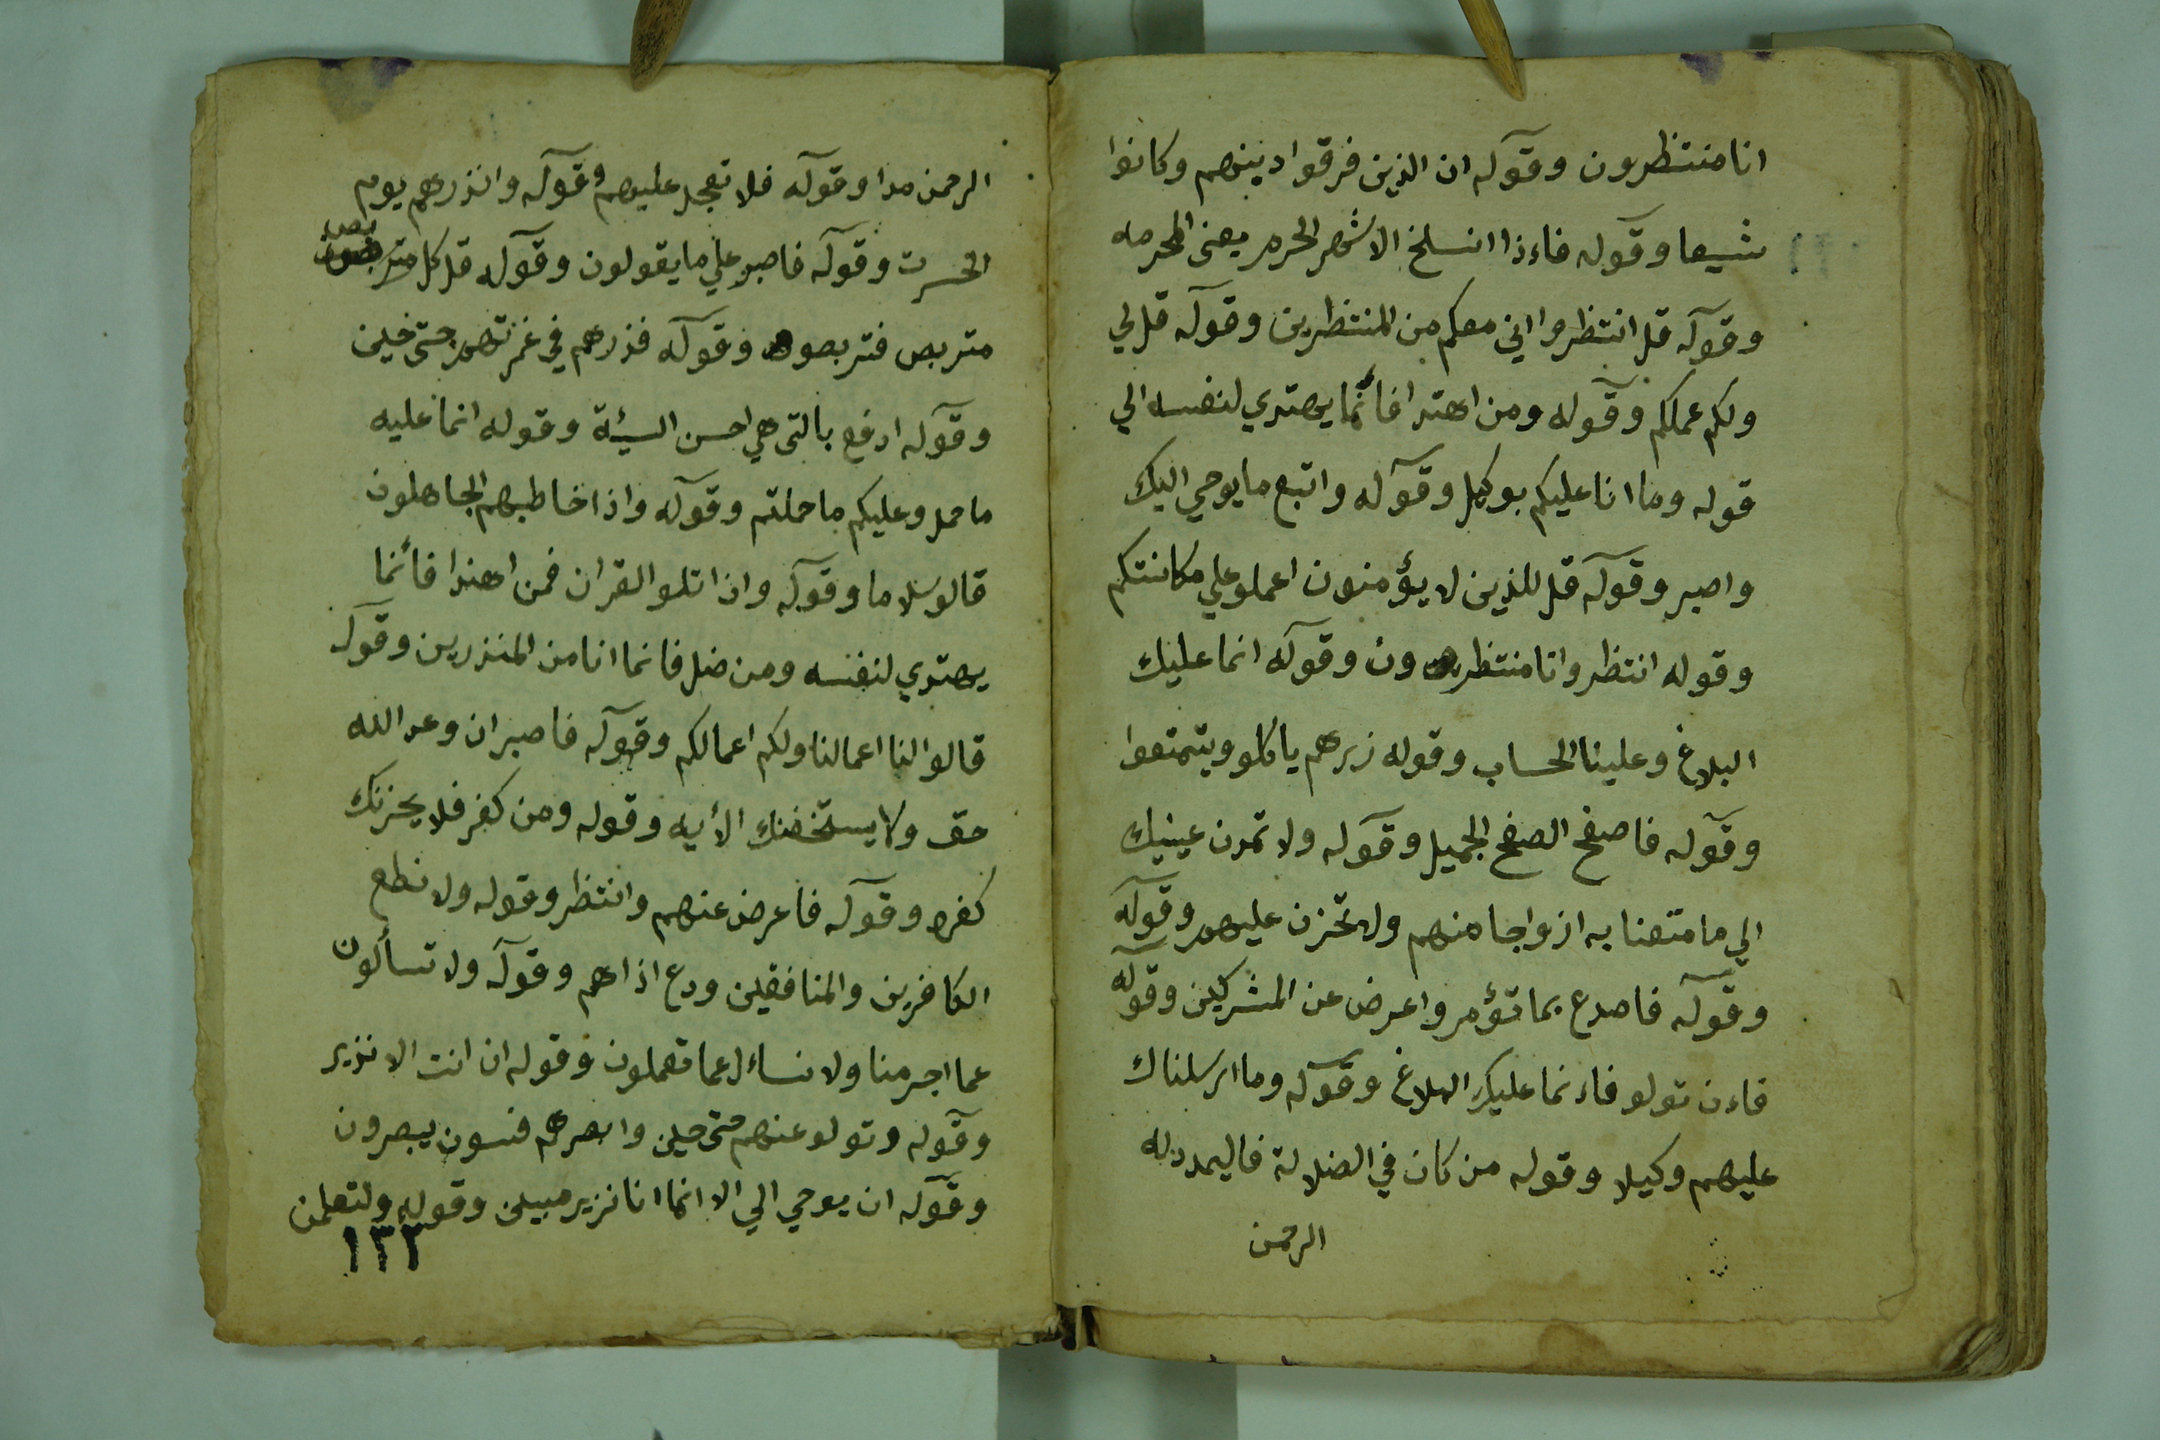 انا منتظرون وقوله ان الذين فرقوا دينهم وكانوا
شيعا وقوله فاءذا انسلخ الاشهر الحرم يعنى المحرمه
وقوله قل انتظروا اني معكم من المنتظرين وقوله قل لي
ولكم عملكم وقوله ومن اهتدا فأنما يهتدي لنفسه الي
قوله وما انا عليكم بوكيل وقوله واتبع ما يوحي اليك
واصبر وقوله قل للذين لا يؤمنون اعملو علي مكانتكم
وقوله انتظر وانا منتظرون وقوله انما عليك
البلاغ وعلينا الحساب وقوله زرهم ياكلو ويتمتعوا
وقوله فاصفح الصفح الجميل وقوله ولا تمدن عينيك
الي ما متعنا به ازواجا منهم ولا تحزن عليهم وقوله
وقوله فاصدع بما تؤمر واعرض عن المشركين وقوله
فاءن تولو فاءنما عليك البلاغ وقوله وما ارسلناك
عليهم وكيلا وقوله من كان في الضلالة فاليمدد له
الرحمن
الرحمن مدا وقوله فلا تعجل عليهم وقوله وانذرهم يوم
الحسرت وقوله فاصبر علي ما يقولون وقوله قل كل متربص
متربص فتربصو وقوله فذرهم في غمرتهم حتى حين
وقوله ادفع بالتى هي احسن السيئة وقوله انما عليه
ما حمل وعليكم ما حملتم وقوله واذا خاطبهم الجاهلون
قالو سلاما وقوله واذا تلو القران فمن اهتدا فأنما
يهتدي لنفسه ومن ضل فانما انا من المنذرين وقوله
قالوا لنا اعمالنا ولكم اعمالكم وقوله فاصبر ان وعد الله
حق ولا يستخفنك الأيه وقوله ومن كفر فلا يحزنك
كفره وقوله فاعرض عنهم وانتظر وقوله ولا تطع
الكافرين والمنافقين ودع اذاهم وقوله ولا تسألون
عما اجرمنا ولا نساءل عما تعملون وقوله ان انت الا نزير
وقوله وتولو عنهم حتى حين وابصرهم فسون يبصرون
وقوله ان يوحي الي الا انما انا نزير مبين وقوله ولتعلمن
١٣٢